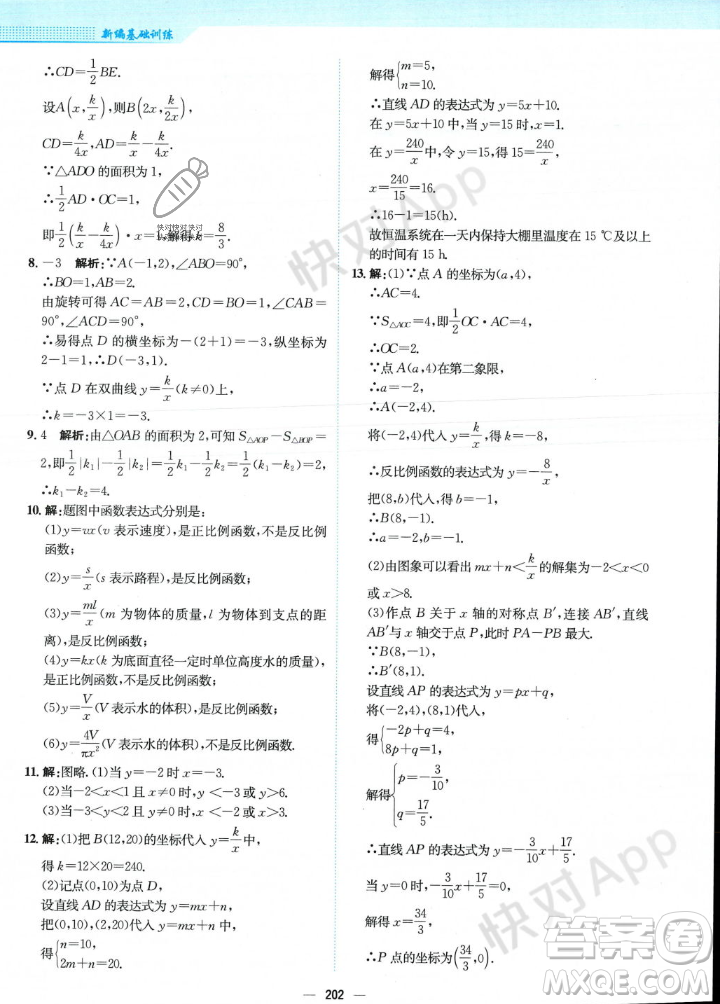 新编基础训练
∴CD=1/2 BE.
设A(x, k/x),则B(2x, k/2x),
CD=k/4x,AD=k/x-k/4x.
∵△ADO 的面积为 1,
∴1/2 AD·OC=1,
即1/2(k/x-k/4x)·x=1,解得k=8/3.
8. -3 解析:∵A(-1,2),∠ABO=90°,
∴BO=1,AB=2.
由旋转可得 AC=AB=2,CD=OB=1,∠CAB=
90°,∠ACD=90°,
∴易得点 D 的横坐标为-(2+1)=-3,纵坐标为
2-1=1,
∵点 D 在双曲线 y=k/x(k≠0)上,
∴k=-3×1=-3.
9. 4 解析:由△OAB 的面积为 2,可知 S△AOP-S△BOP=
2,即1/2|k₁|-1/2|k₂|=1/2k₁-1/2k₂=2,
∴k₁-k₂=4.
10. 解:题图中函数表达式分别是:
(1)y=vx(v 表示速度),是正比例函数,不是反比例
函数;
(2)y=s/x(s 表示路程),是反比例函数;
(3)y=ml/x(m 为物体的质量,l 为物体到支点的距
离),是反比例函数;
(4)y=kx(k 为底面直径一定时单位高度水的体积),
是正比例函数,不是反比例函数;
(5)y=V/x(V 表示水的体积),是反比例函数;
(6)y=4V/πx²(V 表示水的体积),不是反比例函数.
11. 解:图略.(1)当 y=-2 时 x=-3.
(2)当-2<y<2 且 y≠0时,x<-3或x>3.
(3)当-3<x<2 且 x≠0时,y<-2或y>3.
12. 解:(1)把 B(12,20)的坐标代入 y=k/x中,
得 k=12×20=240.
(2)记点(0,10)为点 D,
设直线 AD 的表达式为 y=mx+n,
把(0,10),(2,20)代入 y=mx+n,
得{n=10,
2m+n=20.
解得{m=5,
n=10.
∴直线 AD 的表达式为 y=5x+10.
在 y=5x+10 中,当 y=15 时,x=1.
在 y=240/x中,令 y=15,得 15=240/x,
x=240/15=16.
∴16-1=15(h).
故恒温系统在一天内保持大棚里温度在 15 ℃及以上
的时间有 15 h.
13. 解:(1)∵点 A 的坐标为(a,4),
∴AC=4.
∵S△AOC=4,即1/2 OC·AC=4,
∴OC=2.
∵点 A(a,4)在第二象限,
∴a=-2,
∴A(-2,4).
将(-2,4)代入 y=k/x,得 k=-8,
∴反比例函数的表达式为 y=-8/x,
把(8,b)代入,得 b=-1,
∴B(8,-1).
(2)由图象可以看出 mx+n<k/x的解集为-2<x<0
或 x>8.
(3)作点 B 关于 x 轴的对称点 B′,连接 AB′,直线
AB′与 x 轴交于点 P,此时 PA-PB 最大.
∵B(8,-1),
∴B′(8,1).
设直线 AP 的表达式为 y=px+q,
将(-2,4),(8,1)代入,
得{-2p+q=4,
8p+q=1.
解得{p=-3/10,
q=17/5.
∴直线 AP 的表达式为 y=-3/10x+17/5.
当 y=0 时,-3/10x+17/5=0,
解得 x=34/3,
∴P 点的坐标为(34/3,0).
快对App
快对App
答案卷
MXQE.COM
202